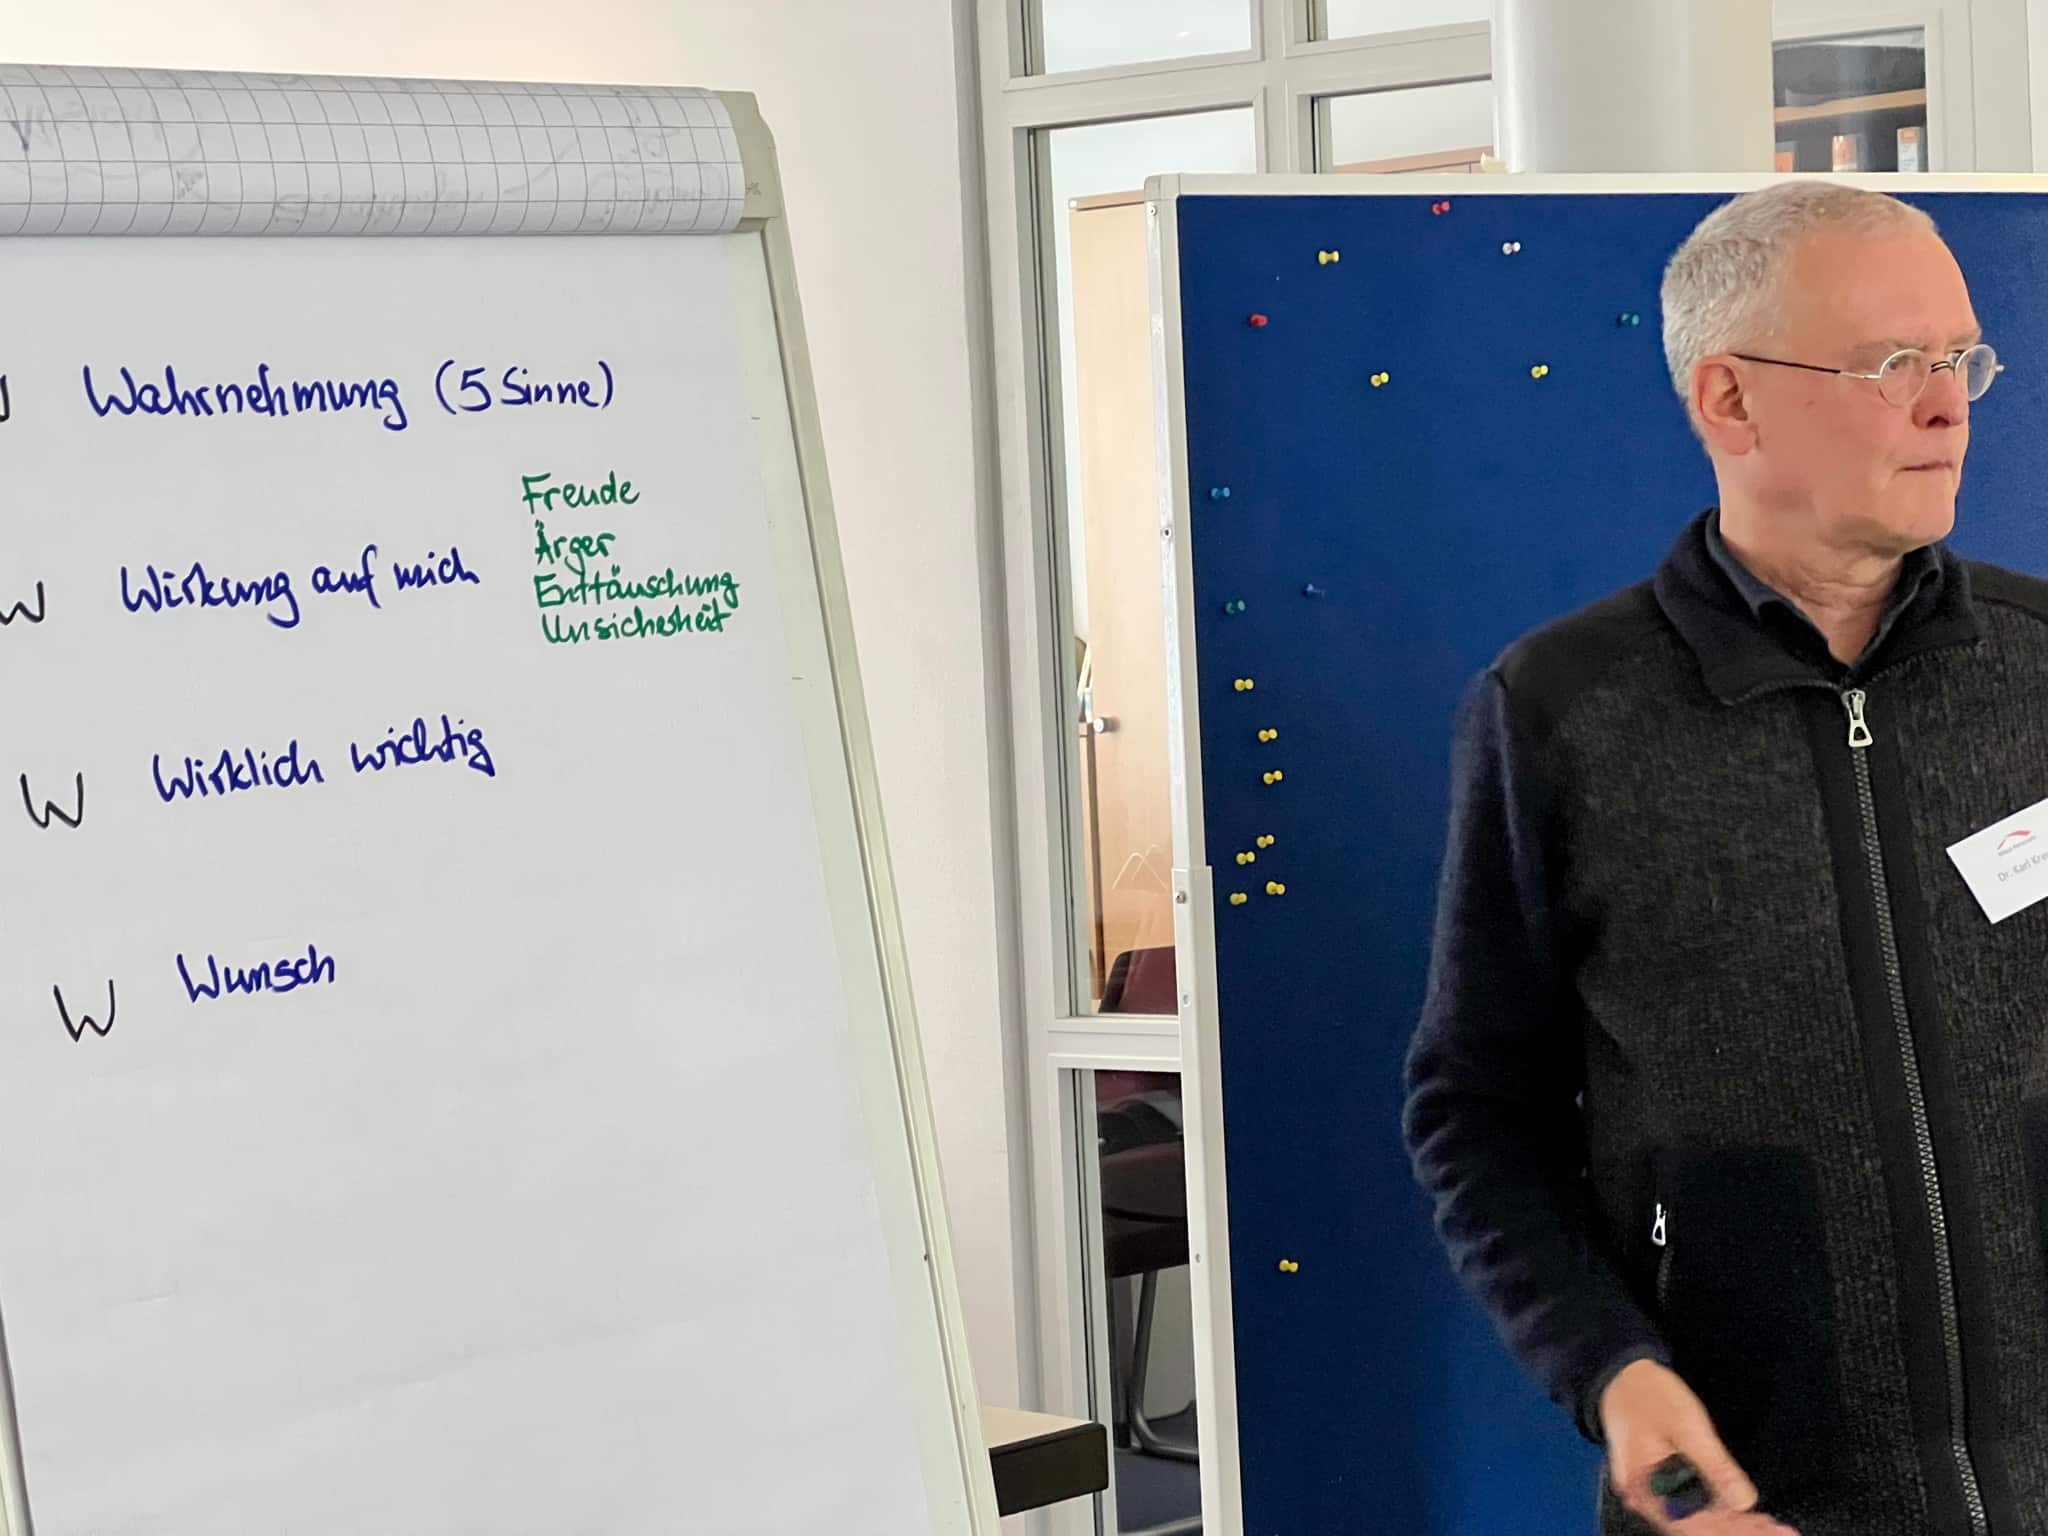 W Wahrnehmung (5 Sinne)
Freude
Ärger
Enttäuschung
Unsicherheit
W Wirkung auf mich
W Wirklich wichtig
W Wunsch
Dr. Karl